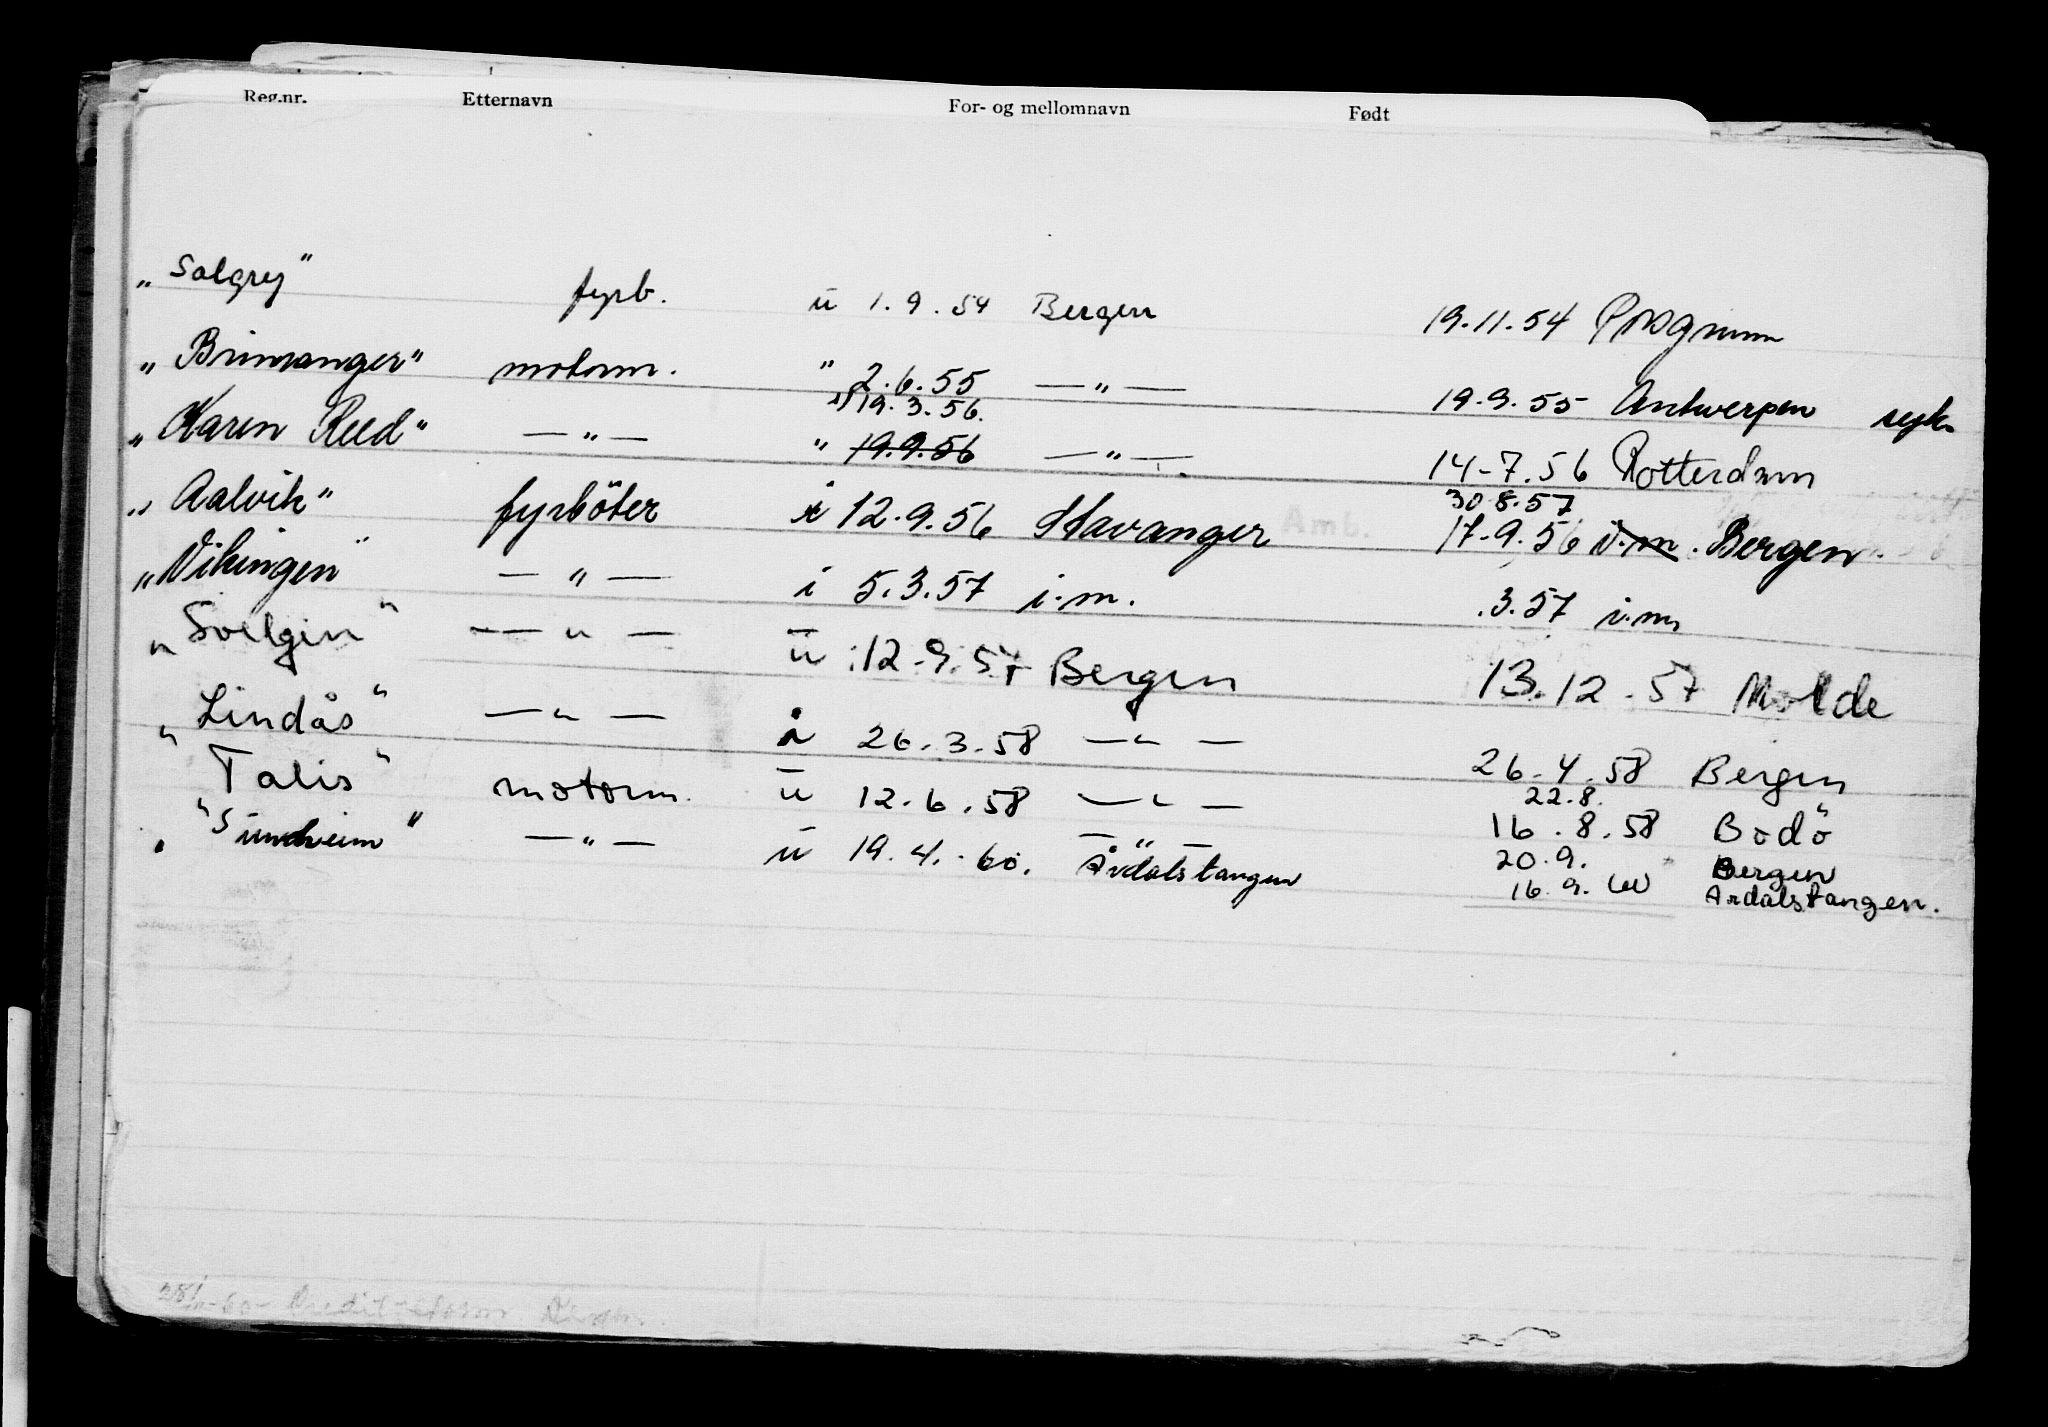 Reg.nr. Etternavn For- og mellomnavn Født
„Solgry" fyrb. u 1.9.54 Bergen 19.11.54
„Brimanger" motorm. " 2.6.55 —"— 19.9.55 Antwerpen syk.
19.3.56.
„Karen Reed" —"— " 19.9.56 —"— 14-7.56 Rotterdam
30.8.57
„Aalvik" fyrböter i 12.9.56 Stavanger 17-9.56 i.m. Bergen.
„Vikingen" —"— i 5.3.57 i.m. .3.57 i.m
„Svelgin" —"— u 12.9.57 Bergen 13.12.57 Molde
„Lindås" —"— i 26.3.58 —"— 26.4.58 Bergen
22.8.
„Talis" motorm. u 12.6.58 —"— 16.8.58 Bodö
—"— 20.9. Bergen
"Sundheim" —"— u 19.4.60. Årdalstangen 16.9.60 Ardalstangen.